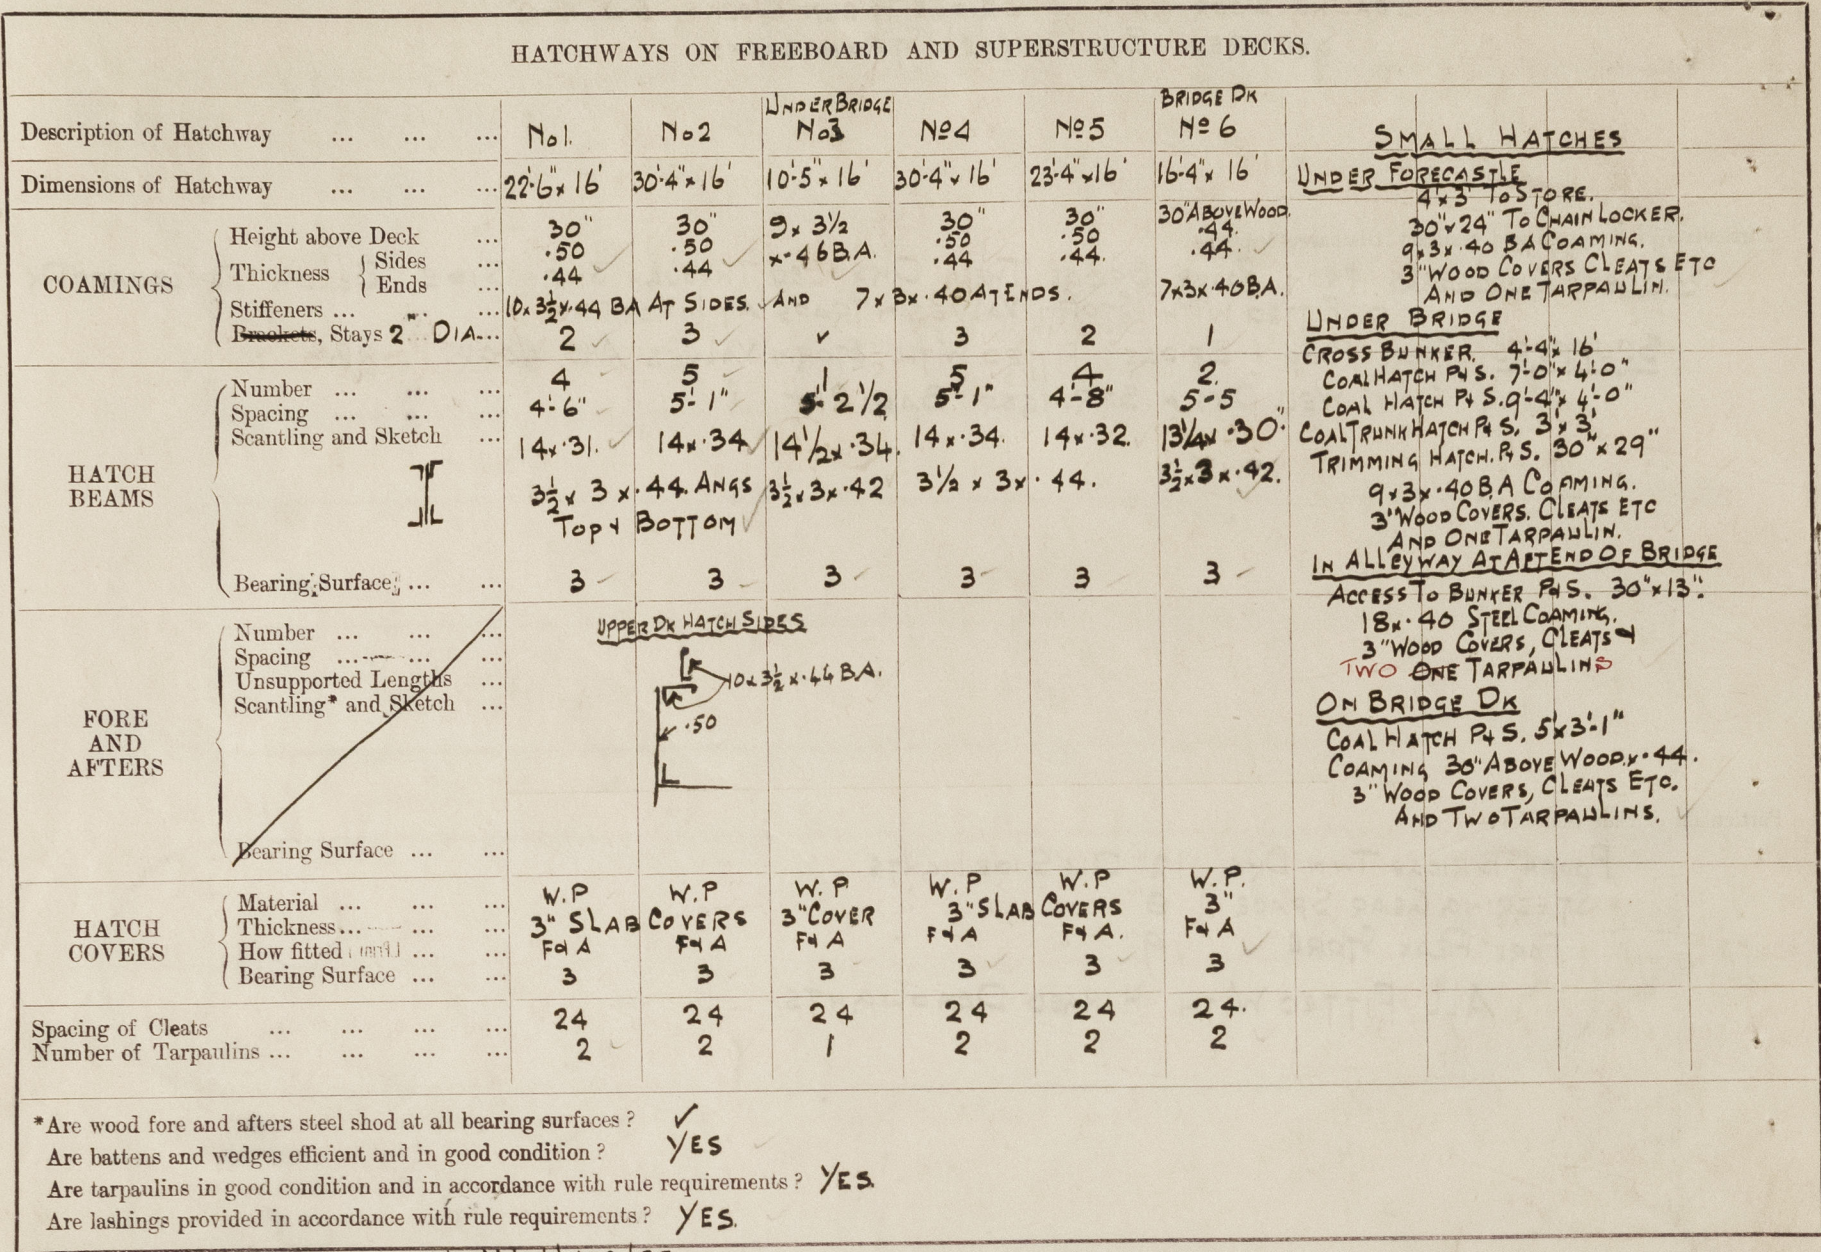 HATCHWAYS ON FREEBOARD AND SUPERSTRUCTURE DECKS.
Description of Hatchway ... ... ... No 1. No 2 UNDER BRIDGE No3 No 4 No 5 BRIDGE DK No 6
Dimensions of Hatchway ... ... ... 22'-6" x 16' 30'-4" x 16' 10'-5" x 16' 30'-4" x 16' 23'-4" x 16' 16'-4" x 16'
COAMINGS
Height above Deck ... 30" 30" 9 x 3½ 30" 30" 30" ABOVE WOOD.
Thickness Sides ... .50 .50 x .46 B.A. .50 .50 .44.
Ends ... .44 .44 .44 .44. .44.
Stiffeners ... ... ... 10 x 3½ x .44 BA AT SIDES. AND 7 x 3 x .40 AT ENDS. 7 x 3 x .40 B.A.
Brackets, Stays 2" DIA... 2 3 ✓ 3 2 1
HATCH BEAMS
Number ... ... ... 4 5 1 5 4 2.
Spacing ... ... ... 4'-6" 5'-1" 5'-2 1/2 5'-1" 4'-8" 5-5
Scantling and Sketch ... 14 x .31. 14 x .34 14 1/2 x .34. 14 x .34. 14 x .32. 13 1/4 x .30"
3½ x 3 x .44. ANGS 3½ x 3 x .42 3 1/2 x 3 x .44. 3½ x 3 x .42.
TOP & BOTTOM
Bearing Surface ... ... 3 3 3 3 3 3
FORE AND AFTERS
Number ... ... ...
Spacing ... ... ...
Unsupported Lengths ...
Scantling* and Sketch ...
Bearing Surface ... ...
UPPER DK HATCH SIDES
10 x 3½ x .44 BA.
.50
HATCH COVERS
Material ... ... ... W.P W.P W.P W.P W.P W.P.
Thickness... ... ... 3" SLAB COVERS 3" COVER 3" SLAB COVERS 3"
How fitted ... ... F & A F & A F & A F & A F & A. F & A
Bearing Surface ... ... 3 3 3 3 3 3
Spacing of Cleats ... ... ... ... 24 24 24 24 24 24.
Number of Tarpaulins ... ... ... ... 2 2 1 2 2 2
SMALL HATCHES
UNDER FORECASTLE
4' x 3' TO STORE.
30" x 24" TO CHAIN LOCKER.
9 x 3 x .40 BA COAMING.
3" WOOD COVERS CLEATS ETC
AND ONE TARPAULIN.
UNDER BRIDGE
CROSS BUNKER. 4'-4" x 16'
COAL HATCH P & S. 7'-0" x 4'-0"
COAL HATCH P & S. 9'-4" x 4'-0"
COAL TRUNK HATCH P & S. 3' x 3'
TRIMMING HATCH. P & S. 30" x 29"
9 x 3 x .40 B.A COAMING.
3" WOOD COVERS. CLEATS ETC
AND ONE TARPAULIN.
IN ALLEYWAY AT AFT END OF BRIDGE
ACCESS TO BUNKER P & S. 30" x 13".
18 x .40 STEEL COAMING.
3" WOOD COVERS, CLEATS &
TWO ONE TARPAULINS
ON BRIDGE DK
COAL HATCH P & S. 5' x 3'-1"
COAMING 30" ABOVE WOOD x .44.
3" WOOD COVERS, CLEATS ETC.
AND TWO TARPAULINS.
*Are wood fore and afters steel shod at all bearing surfaces ? ✓
Are battens and wedges efficient and in good condition ? YES
Are tarpaulins in good condition and in accordance with rule requirements ? YES.
Are lashings provided in accordance with rule requirements ? YES.